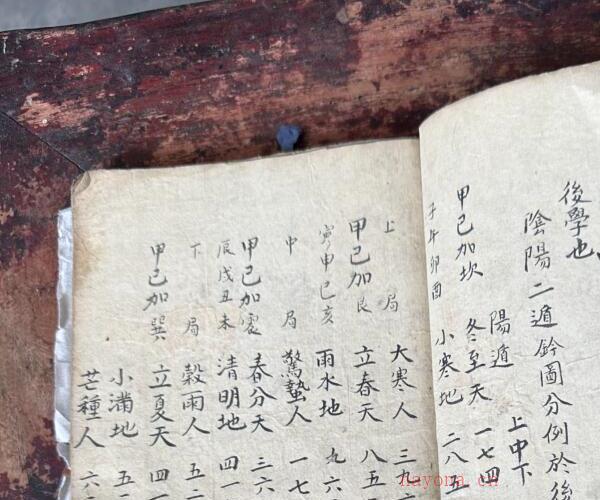 後學也
陰陽二遁鈐圖分例於後
陽遁 上中下
甲己加坎 冬至天 一七四
子午卯酉 小寒地 二八五
上局 大寒人 三九
甲己加艮 立春天 八五
寅申巳亥 雨水地 九六
中局 驚蟄人 一七
甲己加震 春分天 三六
辰戌丑未 清明地 四一
下局 穀雨人 五二
甲己加巽 立夏天 四一
小滿地 五二
芒種人 六
nayona.cn